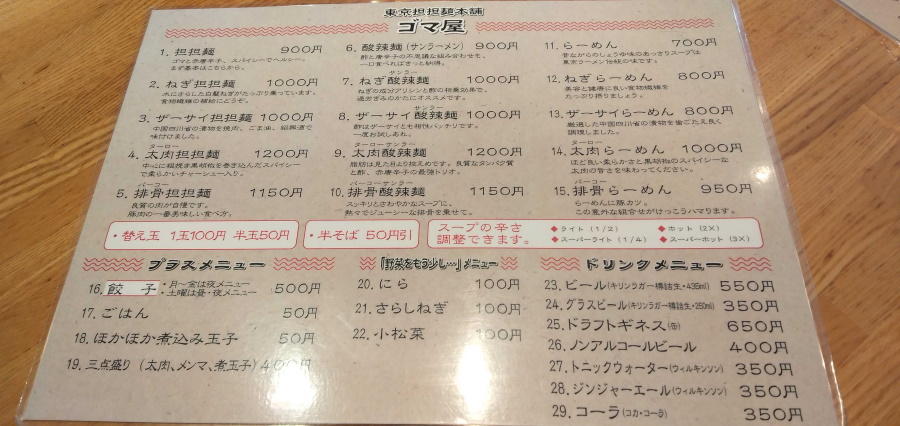 東京担担麺本舗
ゴマ屋
1. 担担麺 900円
ゴマと赤唐辛子、スパイシーでヘルシー。
まず基本はこちらから。
2. ねぎ担担麺 1000円
水にさらした白髪ねぎがたっぷり乗っています。
食物繊維の補給にどうぞ。
3. ザーサイ担担麺 1000円
中国四川省の漬物を焼肉、ごま油、紹興酒で
味付けました。
ターロー
4. 太肉担担麺 1200円
中心に粗挽き黒胡椒を巻き込んだスパイシー
で柔らかいチャーシュー入り。
パーコー
5. 排骨担担麺 1150円
良質の肉が自慢です。
豚肉の一番美味しい食べ方。
6. 酸辣麺(サンラーメン) 900円
酢と唐辛子の不思議な組み合わせも、
一口食べればきっと納得。
サンラー
7. ねぎ酸辣麺 1000円
ねぎの成分アリシンと酢の相乗効果で、
過労ぎみのかたにオススメです。
サンラー
8. ザーサイ酸辣麺 1000円
酢はザーサイとも相性バッチリです。
一度お試しあれ。
ターローサンラー
9. 太肉酸辣麺 1200円
脂肪は見た目より控えめです。良質なタンパク質
と酢、赤唐辛子の最強トリオ。
パーコーサンラー
10. 排骨酸辣麺 1150円
スッキリとさわやかなスープに、
熱々でジューシーな排骨を乗せて。
11. らーめん 700円
昔ながらのしょうゆ味のあっさりスープは
東京ラーメン伝統の味です。
12. ねぎらーめん 800円
美容と健康に良い食物繊維を
たっぷり摂りましょう。
13. ザーサイらーめん 800円
厳選した中国四川省の漬物を歯ごたえ良く
調理しました。
ターロー
14. 太肉らーめん 1000円
ほど良い柔らかさと黒胡椒のスパイシーな
太肉の旨さを味わってください。
パーコー
15. 排骨らーめん 950円
らーめんに豚カツ。
この意外な組合せがけっこうハマります。
・替え玉 1玉100円 半玉50円
・半そば 50円引
スープの辛さ
調整できます。
◆ライト(1/2) ◆ホット(2×)
◆スーパーライト(1/4) ◆スーパーホット(3×)
プラスメニュー
16. 餃 子 ・月〜金は夜メニュー ・土曜は昼・夜メニュー 500円
17. ごはん 50円
18. ほかほか煮込み玉子 50円
19. 三点盛り(太肉、メンマ、煮玉子) 400円
「野菜をもう少し…」メニュー
20. にら 100円
21. さらしねぎ 100円
22. 小松菜 100円
ドリンクメニュー
23. ビール(キリンラガー・樽詰生・435ml) 550円
24. グラスビール(キリンラガー・樽詰生・250ml) 350円
25. ドラフトギネス(缶) 650円
26. ノンアルコールビール 400円
27. トニックウォーター(ウィルキンソン) 350円
28. ジンジャーエール(ウィルキンソン) 350円
29. コーラ(コカ・コーラ) 350円